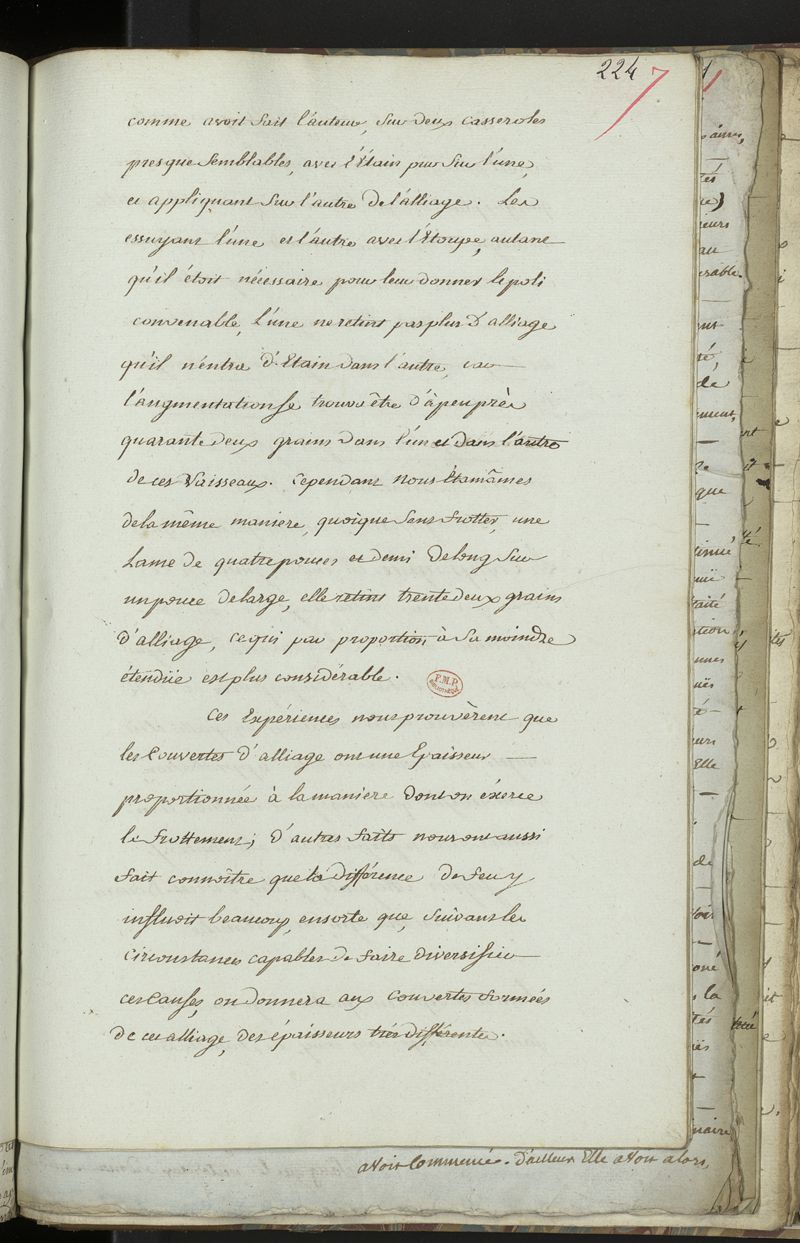 224
7
comme avoit fait l'auteur, sur deux casseroles
presque semblables, avec l'Étain pur sur l'une,
et appliquant sur l'autre de l'alliage. Les
essuyant l'une et l'autre avec l'Étoupe, autant
qu'il étoit nécessaire pour leur donner le poli
convenable, l'une ne retint pas plus d'alliage
qu'il n'entra d'Etain dans l'autre, car
l'augmentation se trouva être d'à peu près
quarante deux grains dans l'un et dans l'autre
de ces Vaisseaux. Cependant nous Étamâmes
de la même maniere, quoique sans frotter, une
Lame de quatre pouces et demi de long sur
un pouce de large, elle retint trente deux grains
d'alliage, ce qui par proportion à sa moindre
étendüe est plus considérable.
P.M.P.
Ces Expériences nous prouvèrent que
les Couvertes d'alliage ont une Epaisseur
proportionnée à la maniere dont on éxerce
le frottement; d'autres faits nous ont aussi
fait connoître que la différence de feu y
influoit beaucoup, ensorte que, suivant les
circonstances capables de faire diversifier
ces Causes, on donnera aux couvertes formées
de cet alliage, des épaisseurs très différente.
avoit Commencée. D'ailleurs Elle avoit alors,